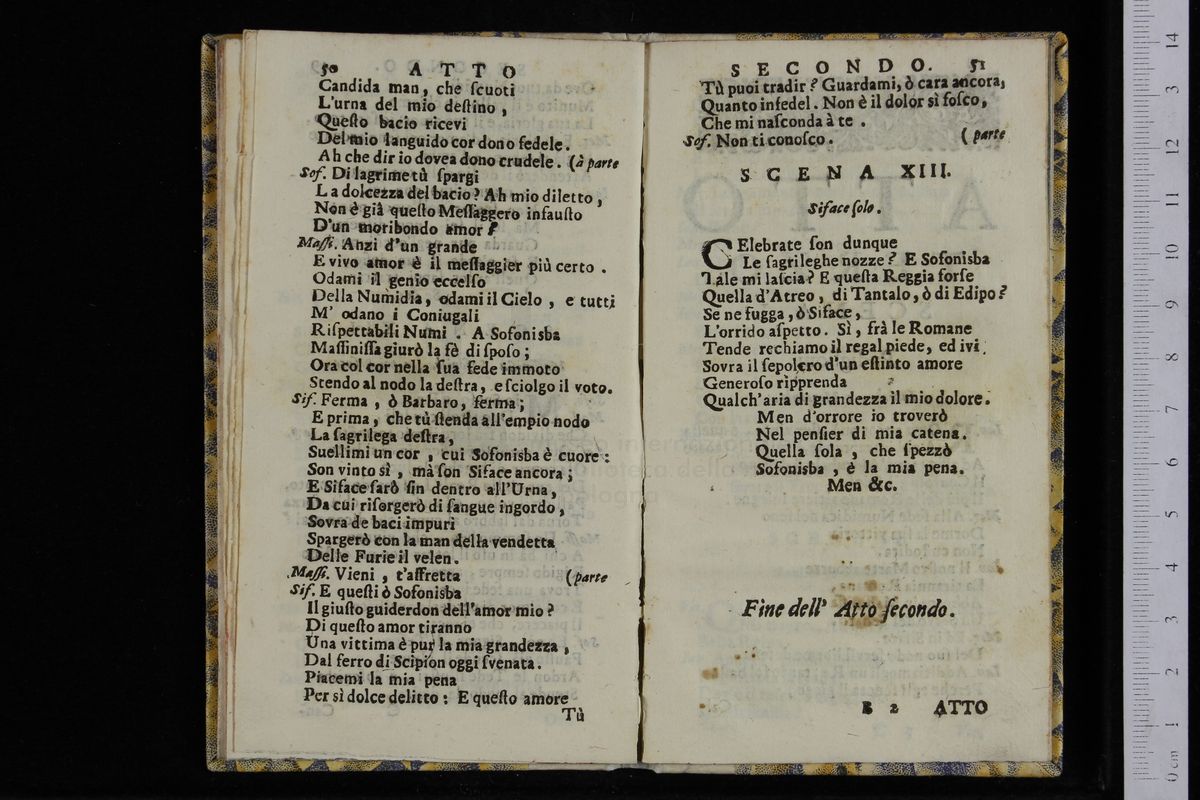 50 ATTO
Candida man, che ſcuoti
L'urna del mio deſtino,
Queſto bacio ricevi
Del mio languido cor dono fedele.
Ah che dir io dovea dono crudele. (à parte
Sof. Di lagrime tù ſpargi
La dolcezza del bacio? Ah mio diletto,
Non è già queſto Meſſaggero infauſto
D'un moribondo amor?
Maſſi. Anzi d'un grande
E vivo amor è il meſſaggier più certo.
Odami il genio eccelſo
Della Numidia, odami il Cielo, e tutti
M' odano i Coniugali
Riſpettabili Numi. A Sofonisba
Maſſiniſſa giurò la fè di ſpoſo;
Ora col cor nella ſua fede immoto
Stendo al nodo la deſtra, e ſciolgo il voto.
Sif. Ferma, ò Barbaro, ferma;
E prima, che tù ſtenda all'empio nodo
La ſagrilega deſtra,
Suellimi un cor, cui Sofonisba è cuore:
Son vinto sì, mà ſon Siface ancora;
E Siface ſarò ſin dentro all'Urna,
Da cui riſorgerò di ſangue ingordo,
Sovra de baci impuri
Spargerò con la man della vendetta
Delle Furie il velen.
Maſſi. Vieni, t'affretta (parte
Sif. E queſti ò Sofonisba
Il giuſto guiderdon dell'amor mio?
Di queſto amor tiranno
Una vittima è pur la mia grandezza,
Dal ferro di Scipion oggi ſvenata.
Piacemi la mia pena
Per sì dolce delitto: E queſto amore
Tù
SECONDO. 51
Tù puoi tradir? Guardami, ò cara ancora,
Quanto infedel. Non è il dolor sì foſco,
Che mi naſconda à te.
Sof. Non ti conoſco. (parte
SCENA XIII.
Siface ſolo.
CElebrate ſon dunque
Le ſagrileghe nozze? E Sofonisba
Tale mi laſcia? E queſta Reggia forſe
Quella d'Atreo, di Tantalo, ò di Edipo?
Se ne fugga, ò Siface,
L'orrido aſpetto. Sì, frà le Romane
Tende rechiamo il regal piede, ed ivi
Sovra il ſepolcro d'un eſtinto amore
Generoſo ripprenda
Qualch'aria di grandezza il mio dolore.
Men d'orrore io troverò
Nel penſier di mia catena.
Quella ſola, che ſpezzò
Sofonisba, è la mia pena.
Men &c.
Fine dell' Atto ſecondo.
2 ATTO